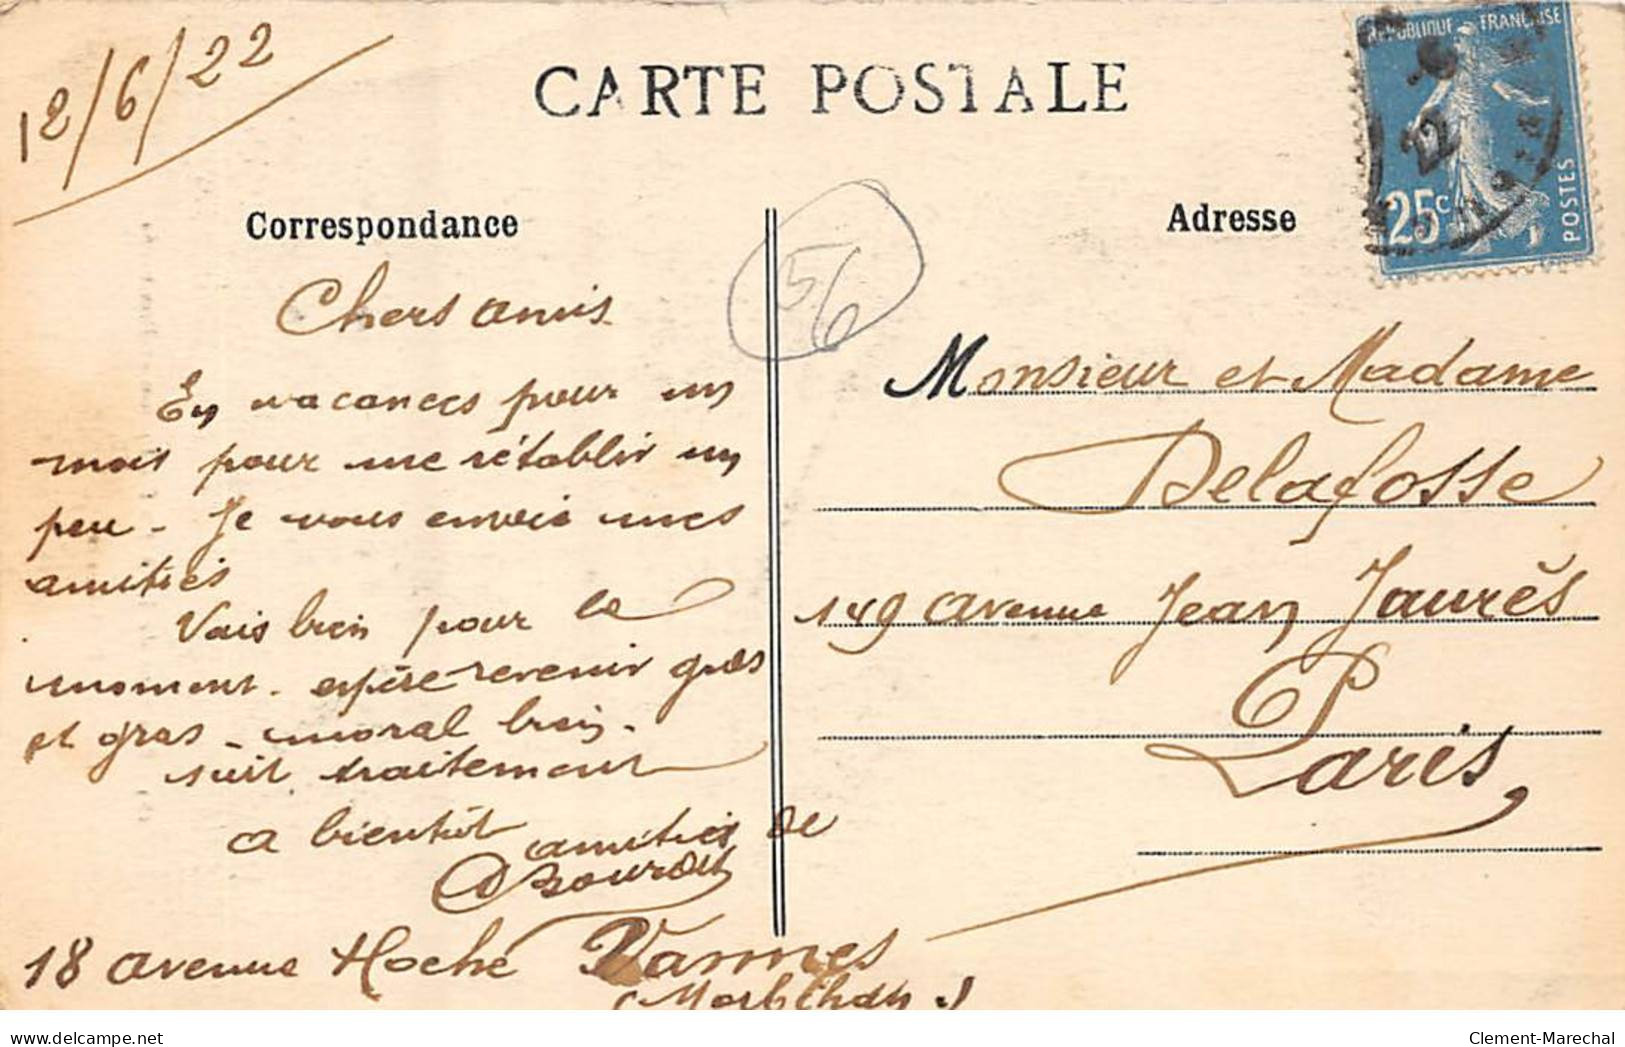 12/6/22
CARTE POSTALE
REPUBLIQUE FRANÇAISE
22
25c
POSTES
Correspondance
56
Adresse
Chers amis
En vacances pour un
mois pour me rétablir un
peu - Je vous envoie mes
amitiés
Vais bien pour le
moment - espère revenir gros
et gras - moral bien -
suit traitement
a bientôt amitiés de
18 avenue Hoche Vannes
(Morbihan)
Monsieur et Madame
Delafosse
149 avenue Jean Jaurès
Paris,
delcampe.net
Clement-Marechal